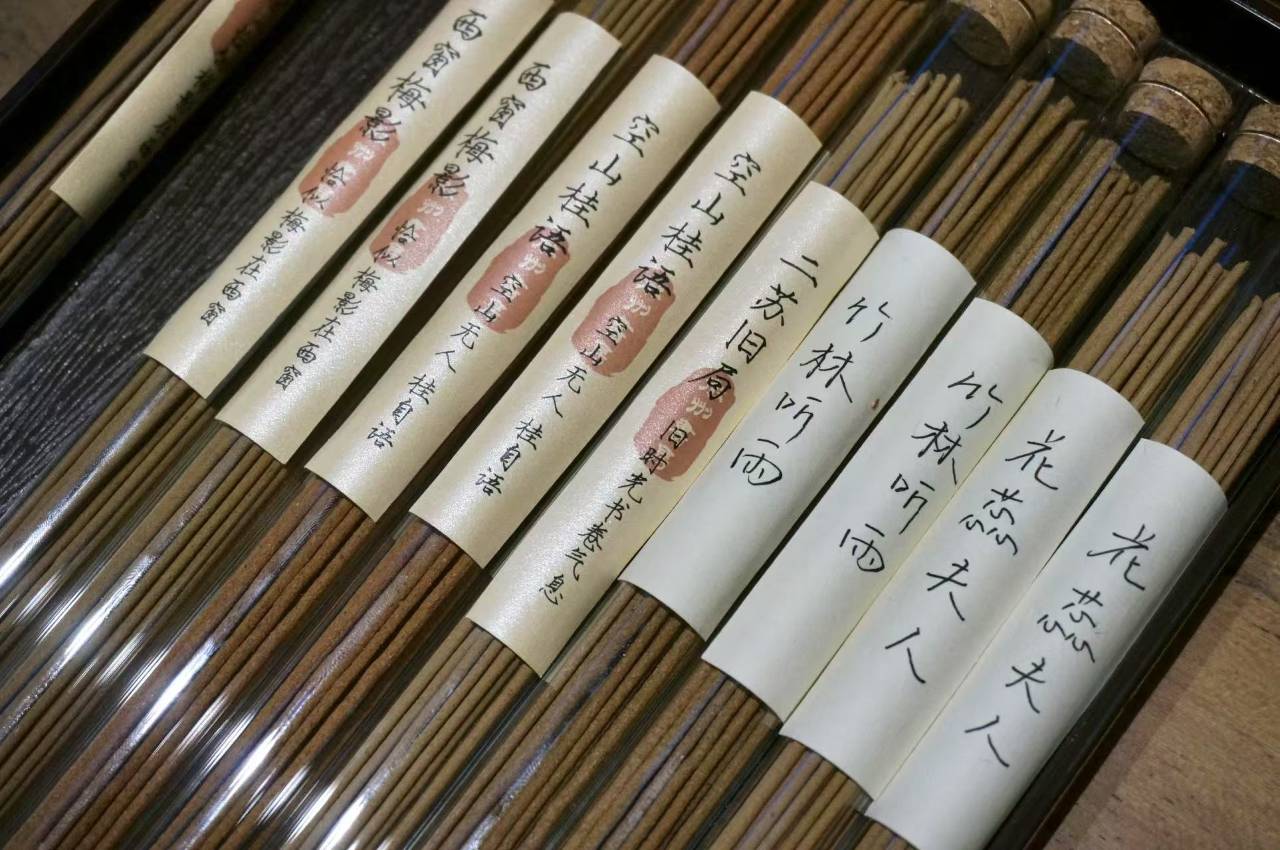 西窗梅影
恰似梅影在西窗
西窗梅影
恰似梅影在西窗
空山桂语
空山无人桂自语
空山桂语
空山无人桂自语
二苏旧局
旧时光书卷气息
竹林听雨
竹林听雨
花蕊夫人
花蕊夫人